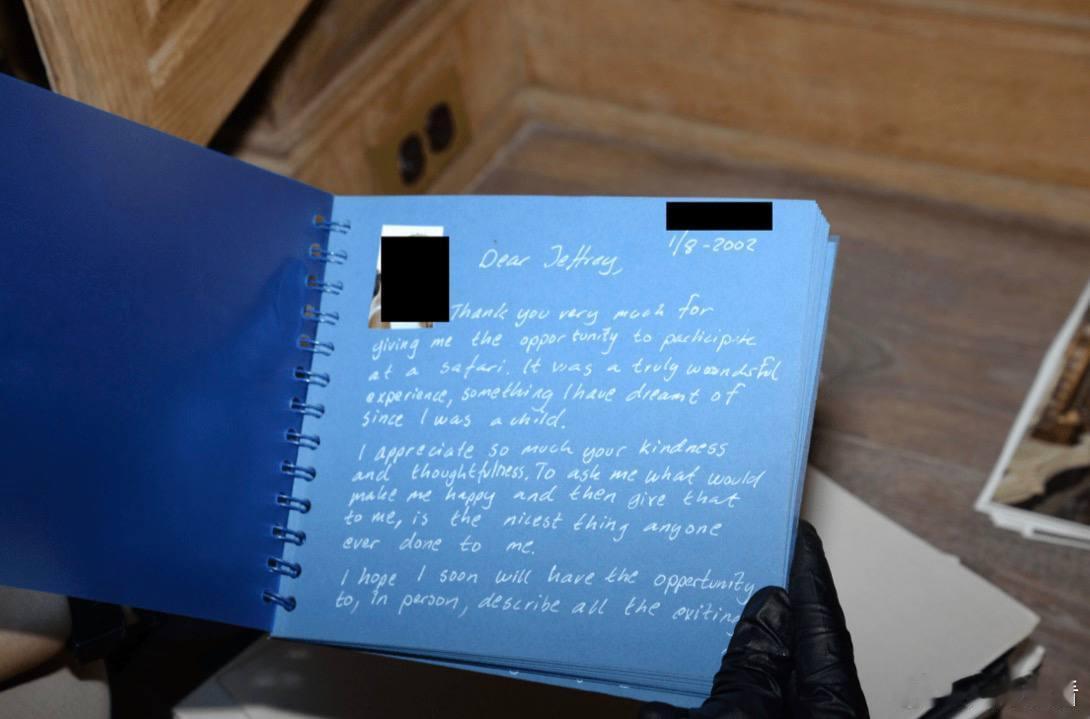 1/8-2002
Dear Jeffrey,
Thank you very much for
giving me the opportunity to participate
at a safari. It was a truly woonderful
experience, something I have dreamt of
since I was a child.
I appreciate so much your kindness
and thoughtfulness. To ask me what would
make me happy and then give that
to me, is the nicest thing anyone
ever done to me.
I hope I soon will have the oppertunity
to, in person, describe all the exiting